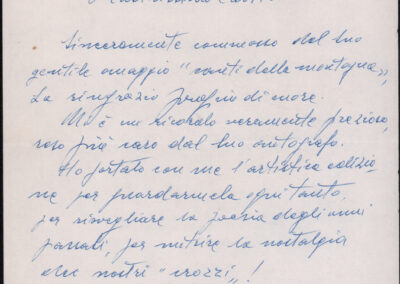 Sinceramente commosso dal Suo
gentile omaggio "canti della montagna",
La ringrazio di more.
Mi è un ricordo veramente prezioso,
reso più caro dal Suo autografo.
Ho portato con me l'artistica edizio-
ne per guardarmela ogni tanto,
per risvegliare la poesia degli anni
passati, per nutrire la nostalgia
dei nostri "crozzi"!